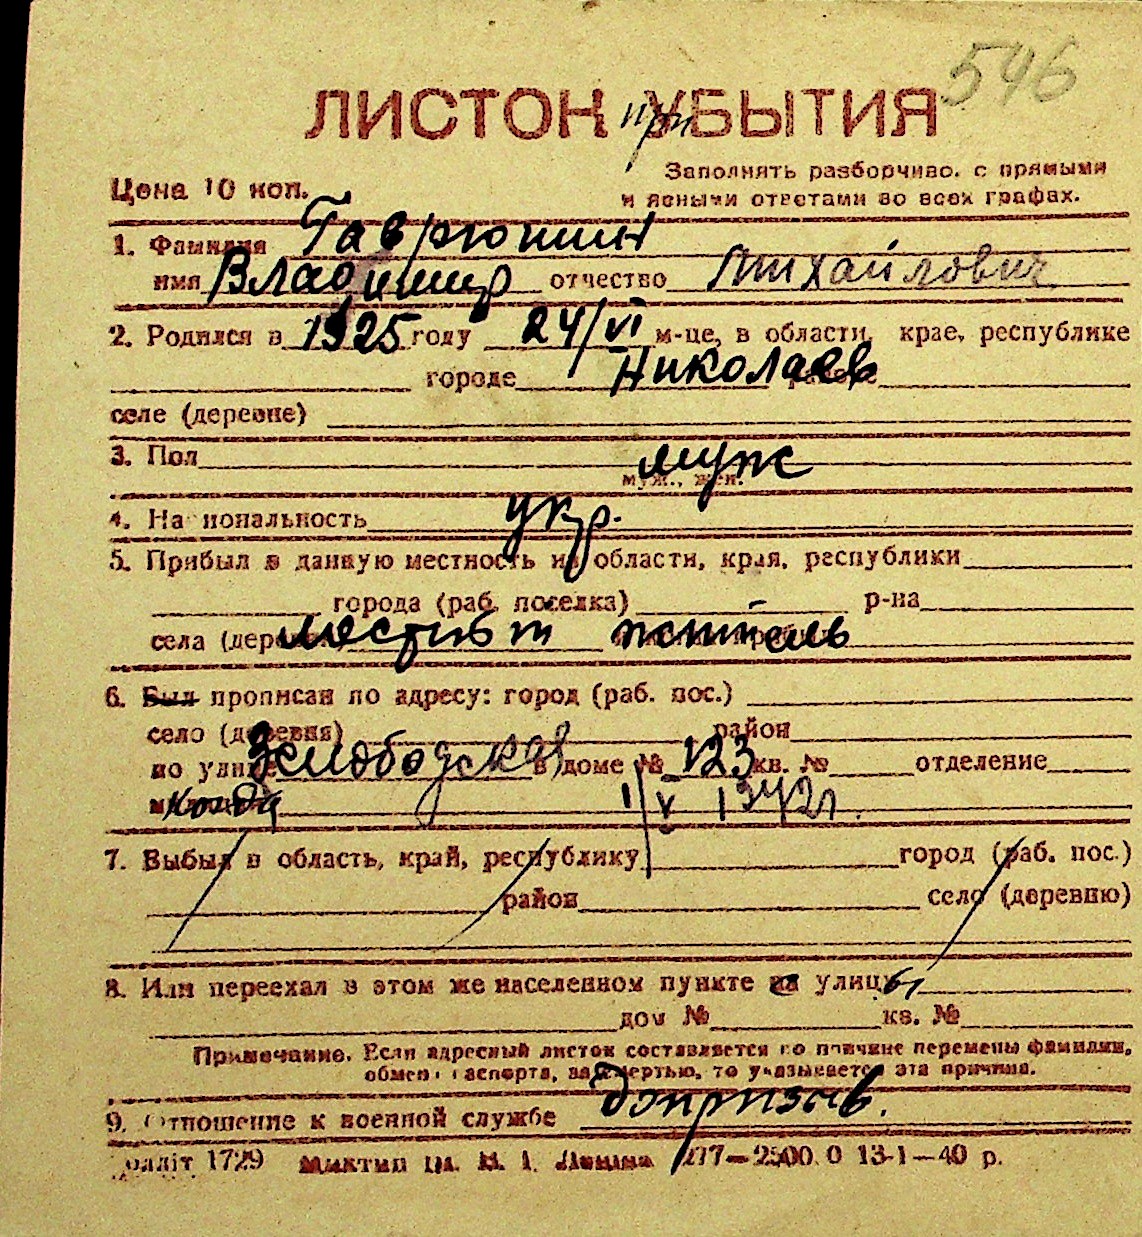 546
ЛИСТОК при УБЫТИЯ
Цена 10 коп.
Заполнять разборчиво, с прямыми
и ясными ответами во всех графах.
1. Фамилия Гаврюшин
имя Владимир отчество Михайлович
2. Родился в 1925 году 24/VI м-це, в области, крае, республике
городе Николаев районе
селе (деревне)
3. Пол муж
муж., жен.
4. Национальность укр.
5. Прибыл в данную местность из области, края, республики
города (раб. поселка) р-на
села (деревни) местный житель
6. Был прописан по адресу: город (раб. пос.)
село (деревня) район
по улице Слободская в доме № 123 кв. № отделение
когда 1/V 1942 г.
7. Выбыл в область, край, республику город (раб. пос.)
район село (деревню)
8. Или переехал в этом же населенном пункте с улицы
дом № кв. №
Примечание. Если адресный листок составляется по причине перемены фамилии,
обмена паспорта, за смертью, то указывается эта причина.
9. Отношение к военной службе допризыв.
1729 им. В. І. Леніна 277—2500.0 13-1—40 р.